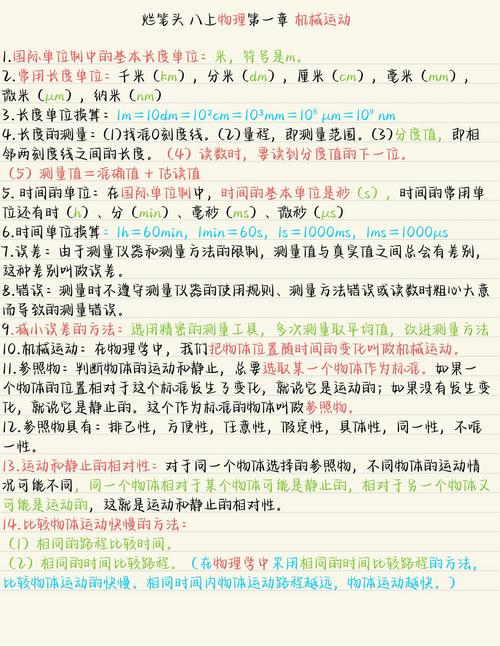 烂笔头 八上物理第一章 机械运动
1.国际单位制中的基本长度单位：米，符号是m。
2.常用长度单位：千米（km），分米（dm），厘米（cm），毫米（mm），
微米（μm），纳米（nm）
3.长度单位换算：1m=10dm=10²cm=10³mm=10⁶ μm=10⁹ nm
4.长度的测量：(1)找准0刻度线。(2)量程，即测量范围。(3)分度值，即相
邻两刻度线之间的长度。（4）读数时，要读到分度值的下一位。
（5）测量值=准确值+估读值
5. 时间的单位：在国际单位制中，时间的基本单位是秒（s），时间的常用单
位还有时（h）、分（min）、毫秒（ms）、微秒（μs）
6.时间单位换算：1h=60min，1min=60s，1s=1000ms，1ms=1000μs
7.误差：由于测量仪器和测量方法的限制，测量值与真实值之间总会有差别，
这种差别叫做误差。
8.错误：测量时不遵守测量仪器的使用规则、测量方法错误或读数时粗心大意
而导致的测量错误。
9.减小误差的方法：选用精密的测量工具，多次测量取平均值，改进测量方法
10.机械运动：在物理学中，我们把物体位置随时间的变化叫做机械运动。
11.参照物：判断物体的运动和静止，总要选取某一个物体作为标准。如果一
个物体的位置相对于这个标准发生了变化，就说它是运动的；如果没有发生变
化，就说它是静止的。这个作为标准的物体叫做参照物。
12.参照物具有：排己性，方便性，任意性，假定性，具体性，同一性，不唯
一性。
13.运动和静止的相对性：对于同一个物体选择的参照物，不同物体的运动情
况可能不同，同一个物体相对于某个物体可能是静止的，相对于另一个物体又
可能是运动的，这就是运动和静止的相对性。
14.比较物体运动快慢的方法：
（1）相同的路程比较时间。
（2）相同的时间比较路程。（在物理学中采用相同的时间比较路程的方法，
比较物体运动的快慢。相同时间内物体运动路程越远，物体运动越快。）